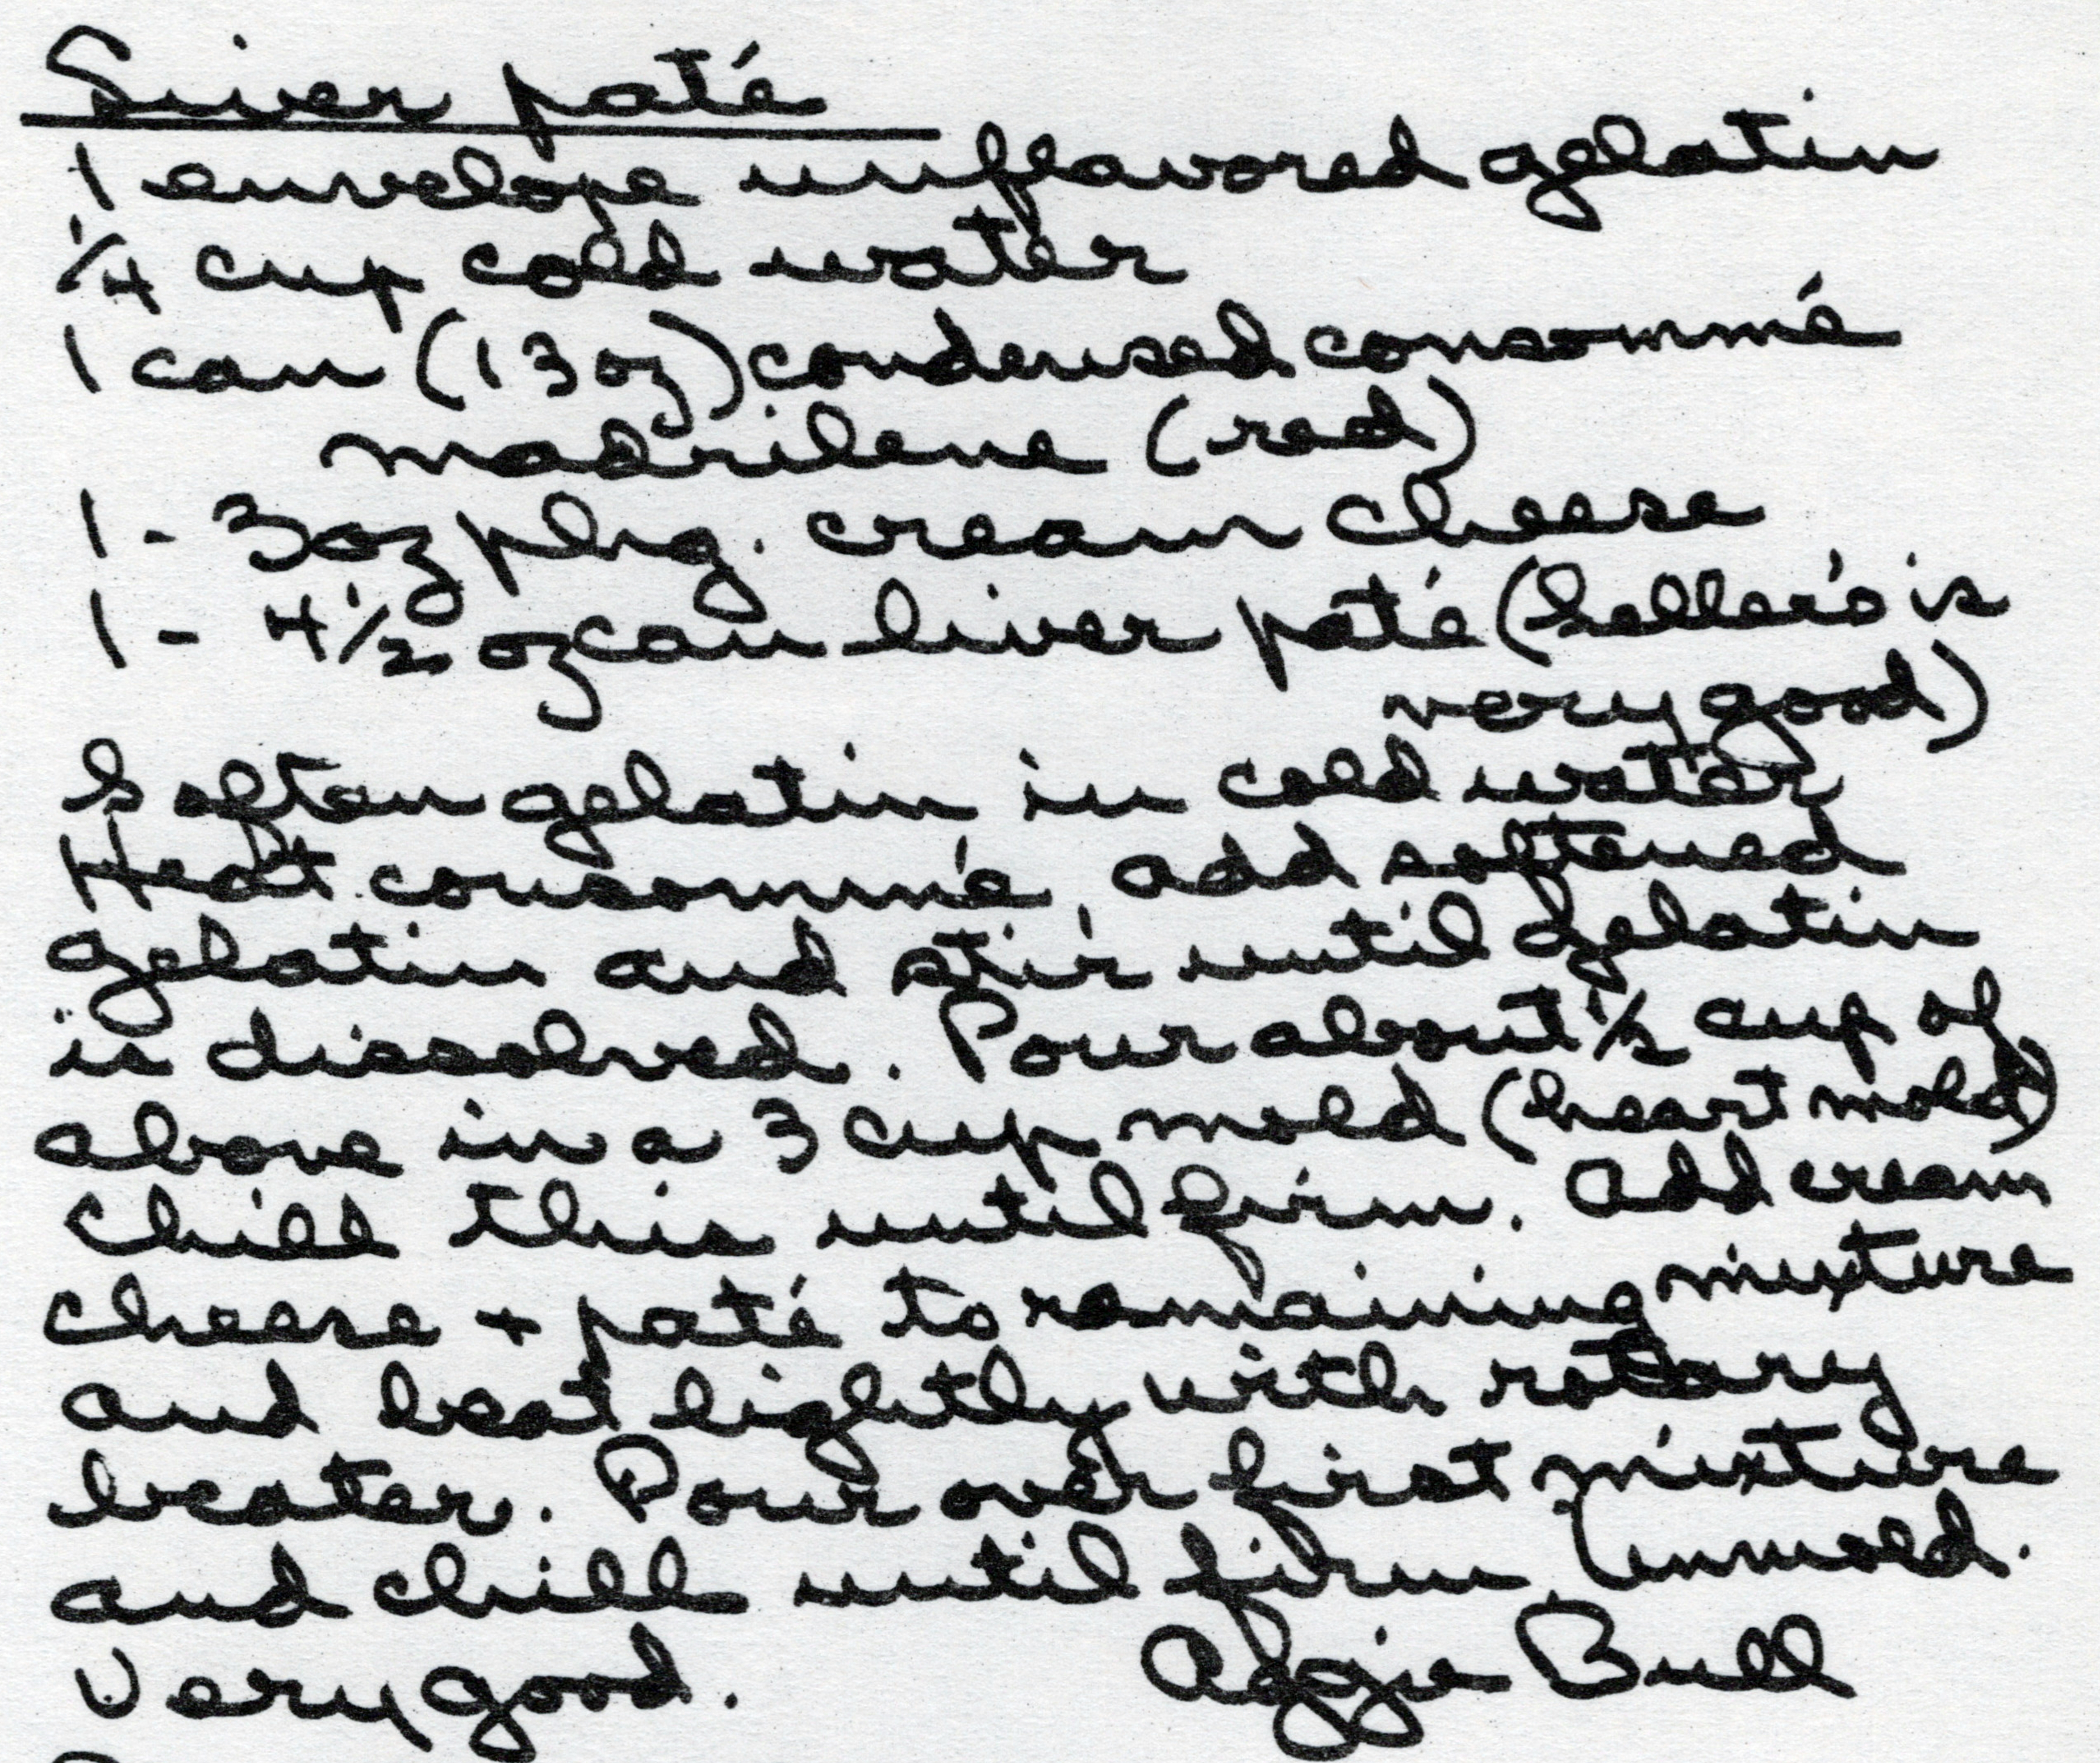 Liver paté
1 envelope unflavored gelatin
1/4 cup cold water
1 can (13 oz) condensed consommé
madrilene (red)
1 - 3 oz pkg. cream cheese
1 - 4 1/2 oz can liver paté (Seller's is
very good)
Soften gelatin in cold water
Heat consommé, add softened
gelatin and stir until gelatin
is dissolved. Pour about 1/2 cup of
above in a 3 cup mold (heart mold)
Chill this until firm. Add cream
cheese + paté to remaining mixture
and beat lightly with rotary
beater. Pour over first mixture
and chill until firm. Unmold.
Very good. Aggie Bull